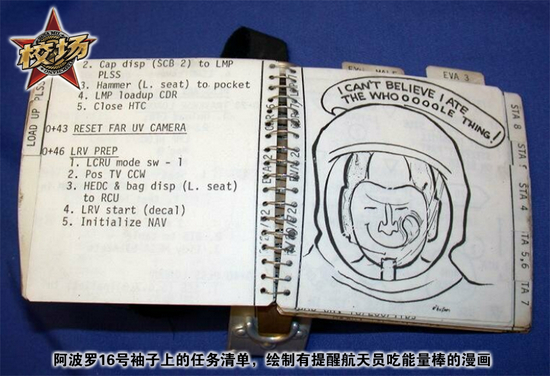 校场
2. Cap disp (SCB 2) to LMP
PLSS
3. Hammer (L. seat) to pocket
4. LMP loadup CDR
5. Close HTC
LOAD UP PLSS
0+43 RESET FAR UV CAMERA
0+46 LRV PREP
1. LCRU mode sw - 1
2. Pos TV CCW
3. HEDC & bag disp (L. seat)
to RCU
4. LRV start (decal)
5. Initialize NAV
EVA 3
I CAN'T BELIEVE I ATE
THE WHOOOOOLE THING!
STA 8
STA 4
STA 5,6
TA 7
阿波罗16号袖子上的任务清单，绘制有提醒航天员吃能量棒的漫画